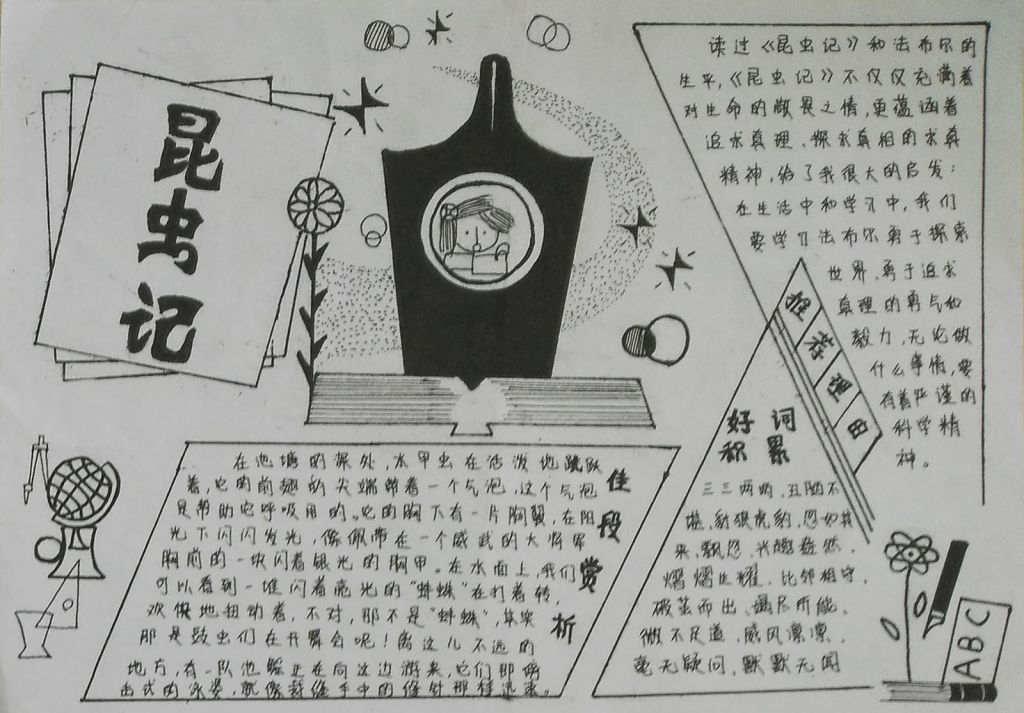 昆虫记
读过《昆虫记》和法布尔的
生平,《昆虫记》不仅仅充满着
对生命的敬畏之情,更蕴涵着
追求真理、探求真相的求真
精神,给了我很大的启发:
在生活中和学习中,我们
要学习法布尔勇于探索
世界、勇于追求
真理的勇气和
毅力,无论做
什么事情,要
有着严谨的
科学精
神。
推荐理由
好词
积累
三三两两,丑陋不
堪,豺狼虎豹,忽如其
来,飘忽,兴趣盎然,
熠熠生耀,比邻相守,
破茧而出,竭尽所能,
微不足道,威风凛凛,
毫无疑问,默默无闻
佳段赏析
在池塘的深处,水甲虫在活泼地跳跃
着,它的前翅的尖端带着一个气泡,这个气泡
是帮助它呼吸用的。它的胸下有一片胸翼,在阳
光下闪闪发光,像佩带在一个威武的大将军
胸前的一块闪着银光的胸甲。在水面上,我们
可以看到一堆闪着亮光的“蚌蛛”在打着转,
欢快地扭动着,不对,那不是“蚌蛛”,其实
那是豉虫们在开舞会呢!离这儿不远的
地方,有一队池鳐正在向这边游来,它们那
击式的泳姿,就像裁缝手中的缝针那样迅速。
ABC